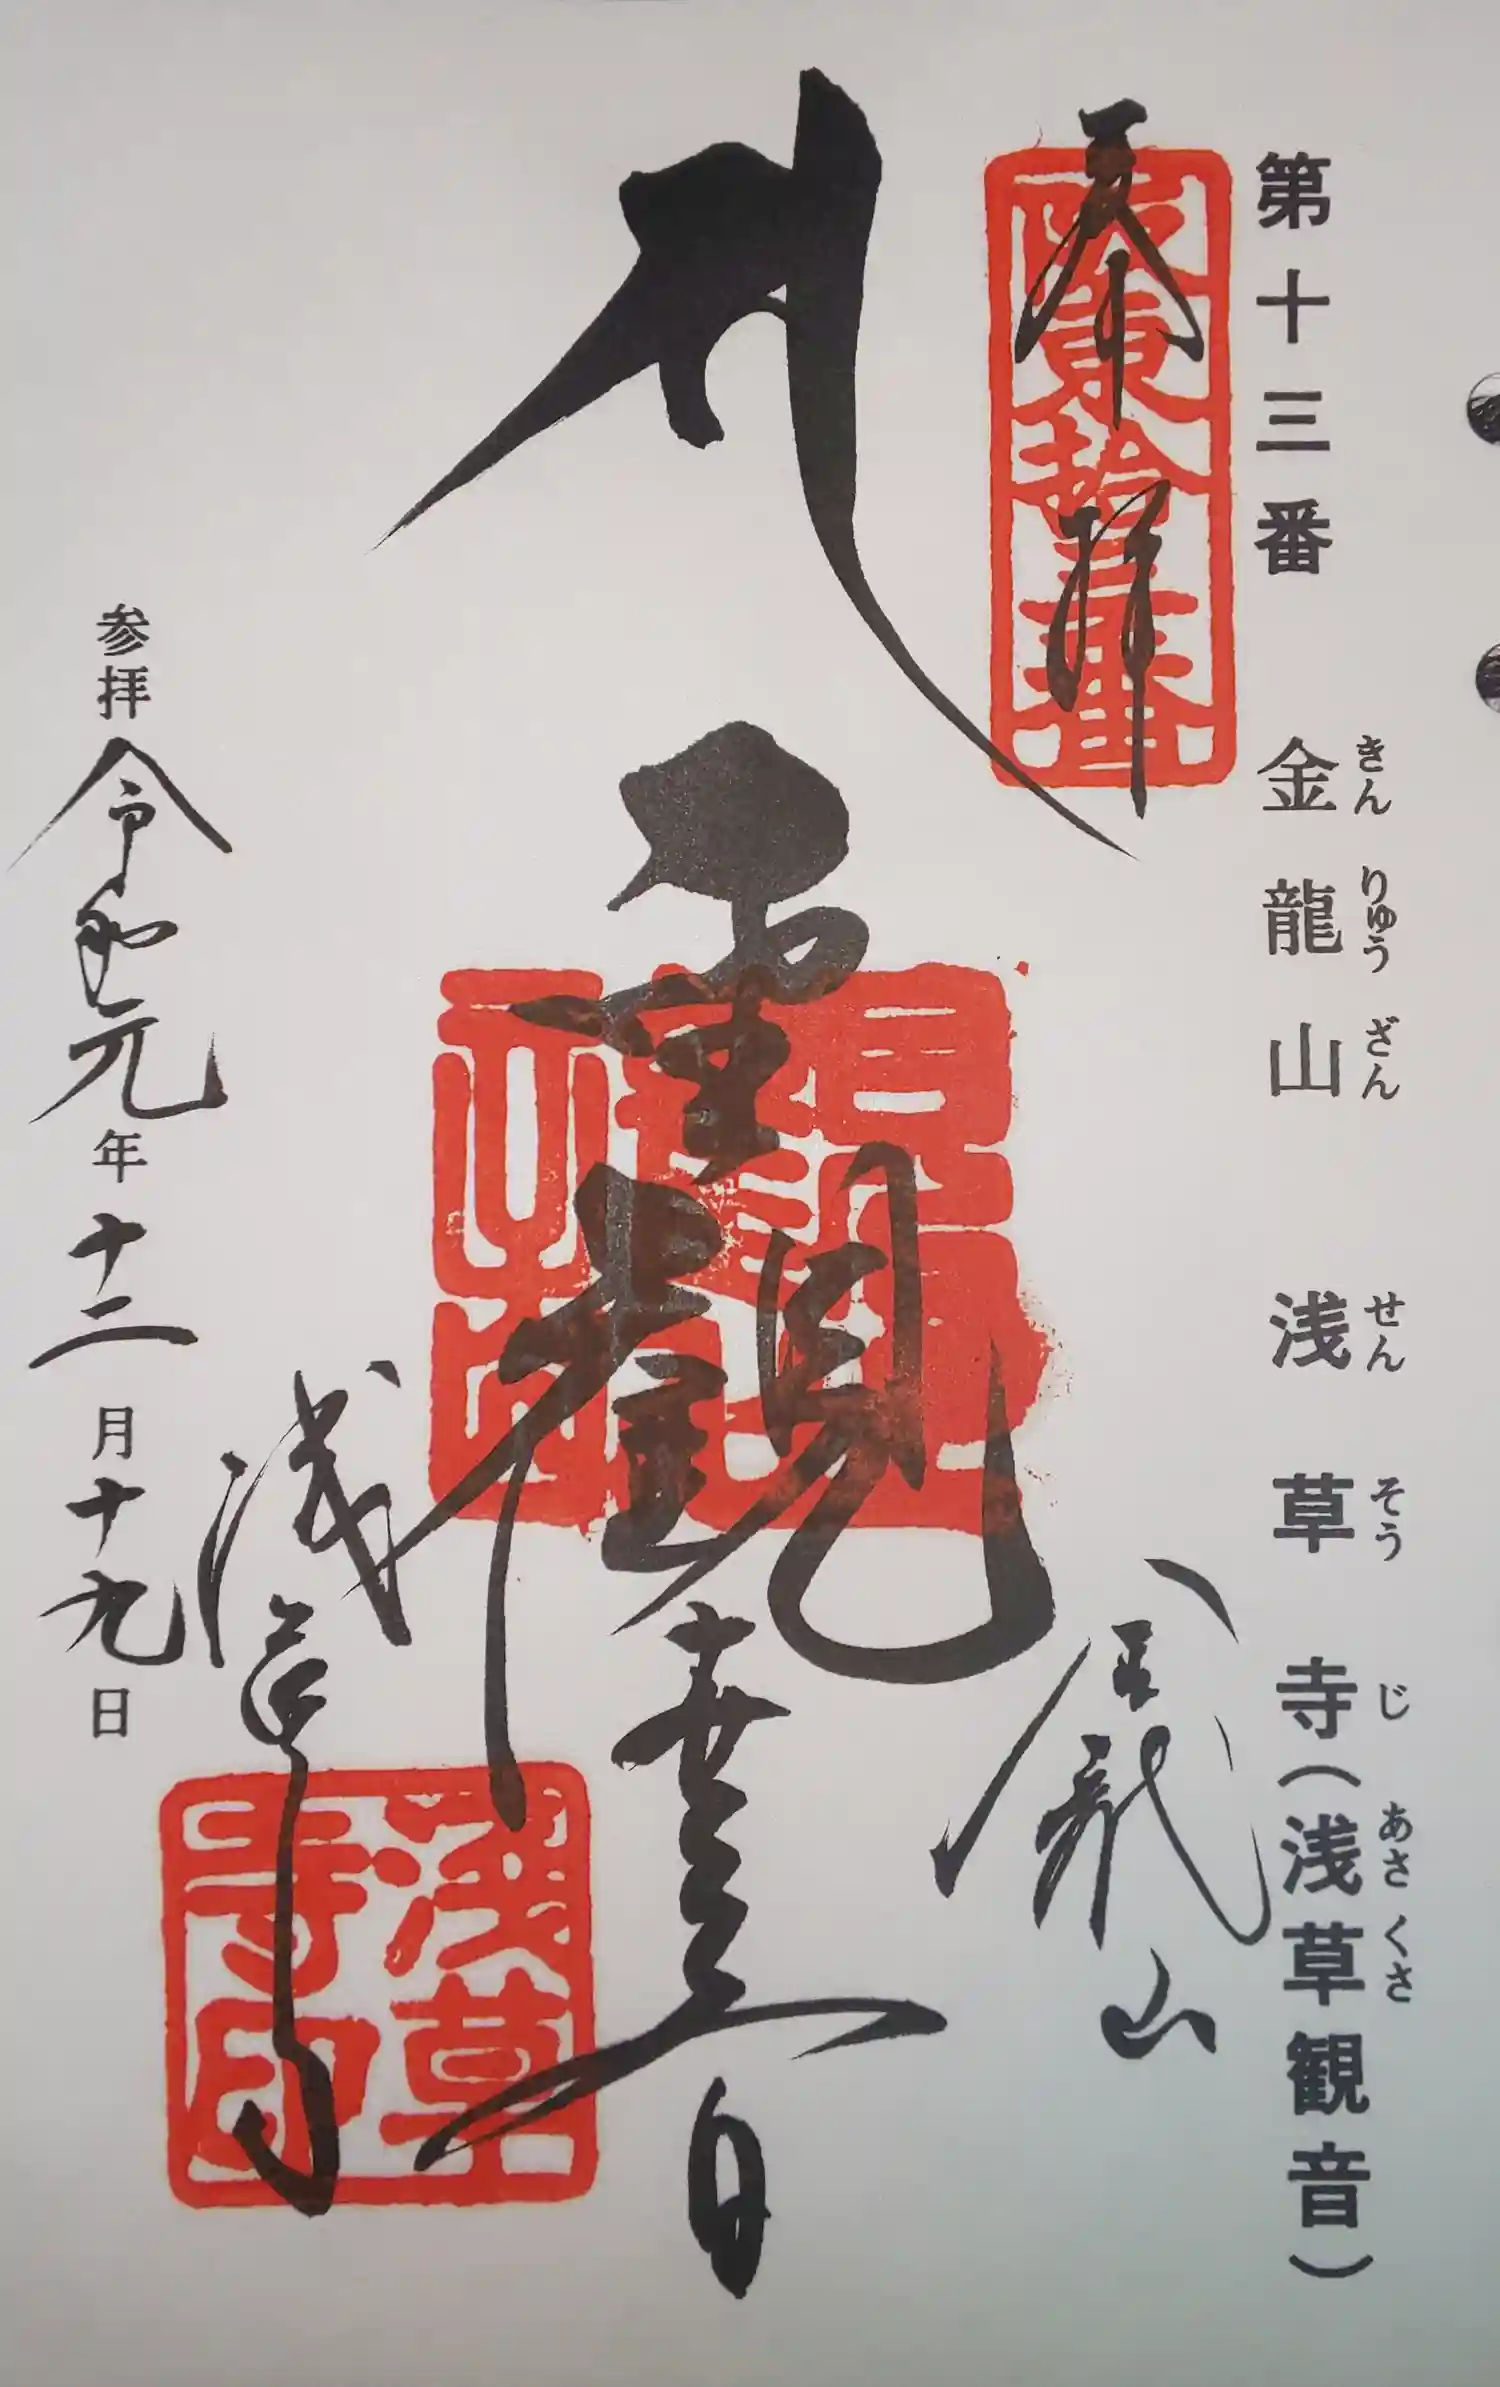 第十三番 金龍山 浅草寺(浅草観音)
きんりゅうざん せんそうじ あさくさ
奉拝
坂東拾三番
金龍山
聖観世音
浅草寺
浅草寺印
参拝 令和元年十二月十九日